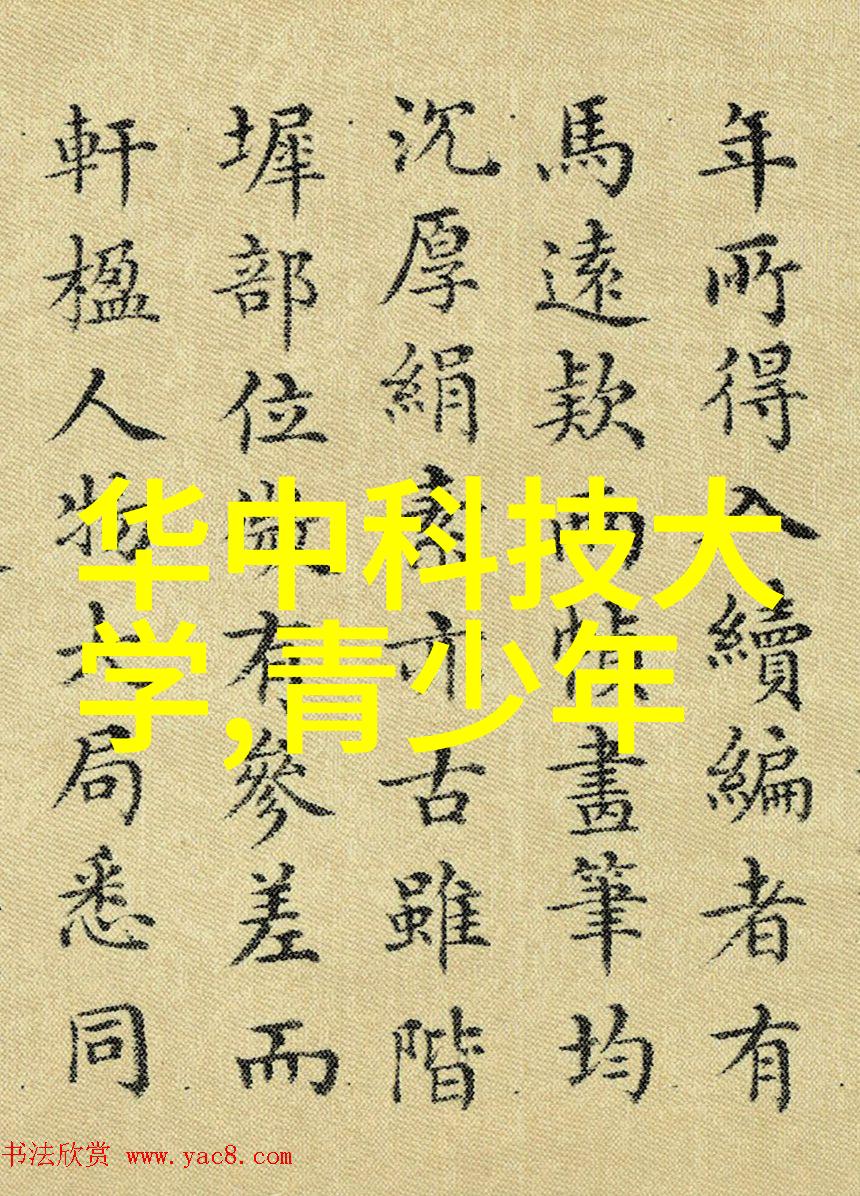 年所得入續編者有
馬遠款兩幀畫筆均
沉厚絹素亦古雖階
墀部位微有參差而
軒楹人物大局悉同
华中科技大
学,青少年
书法欣赏 www.yac8.com